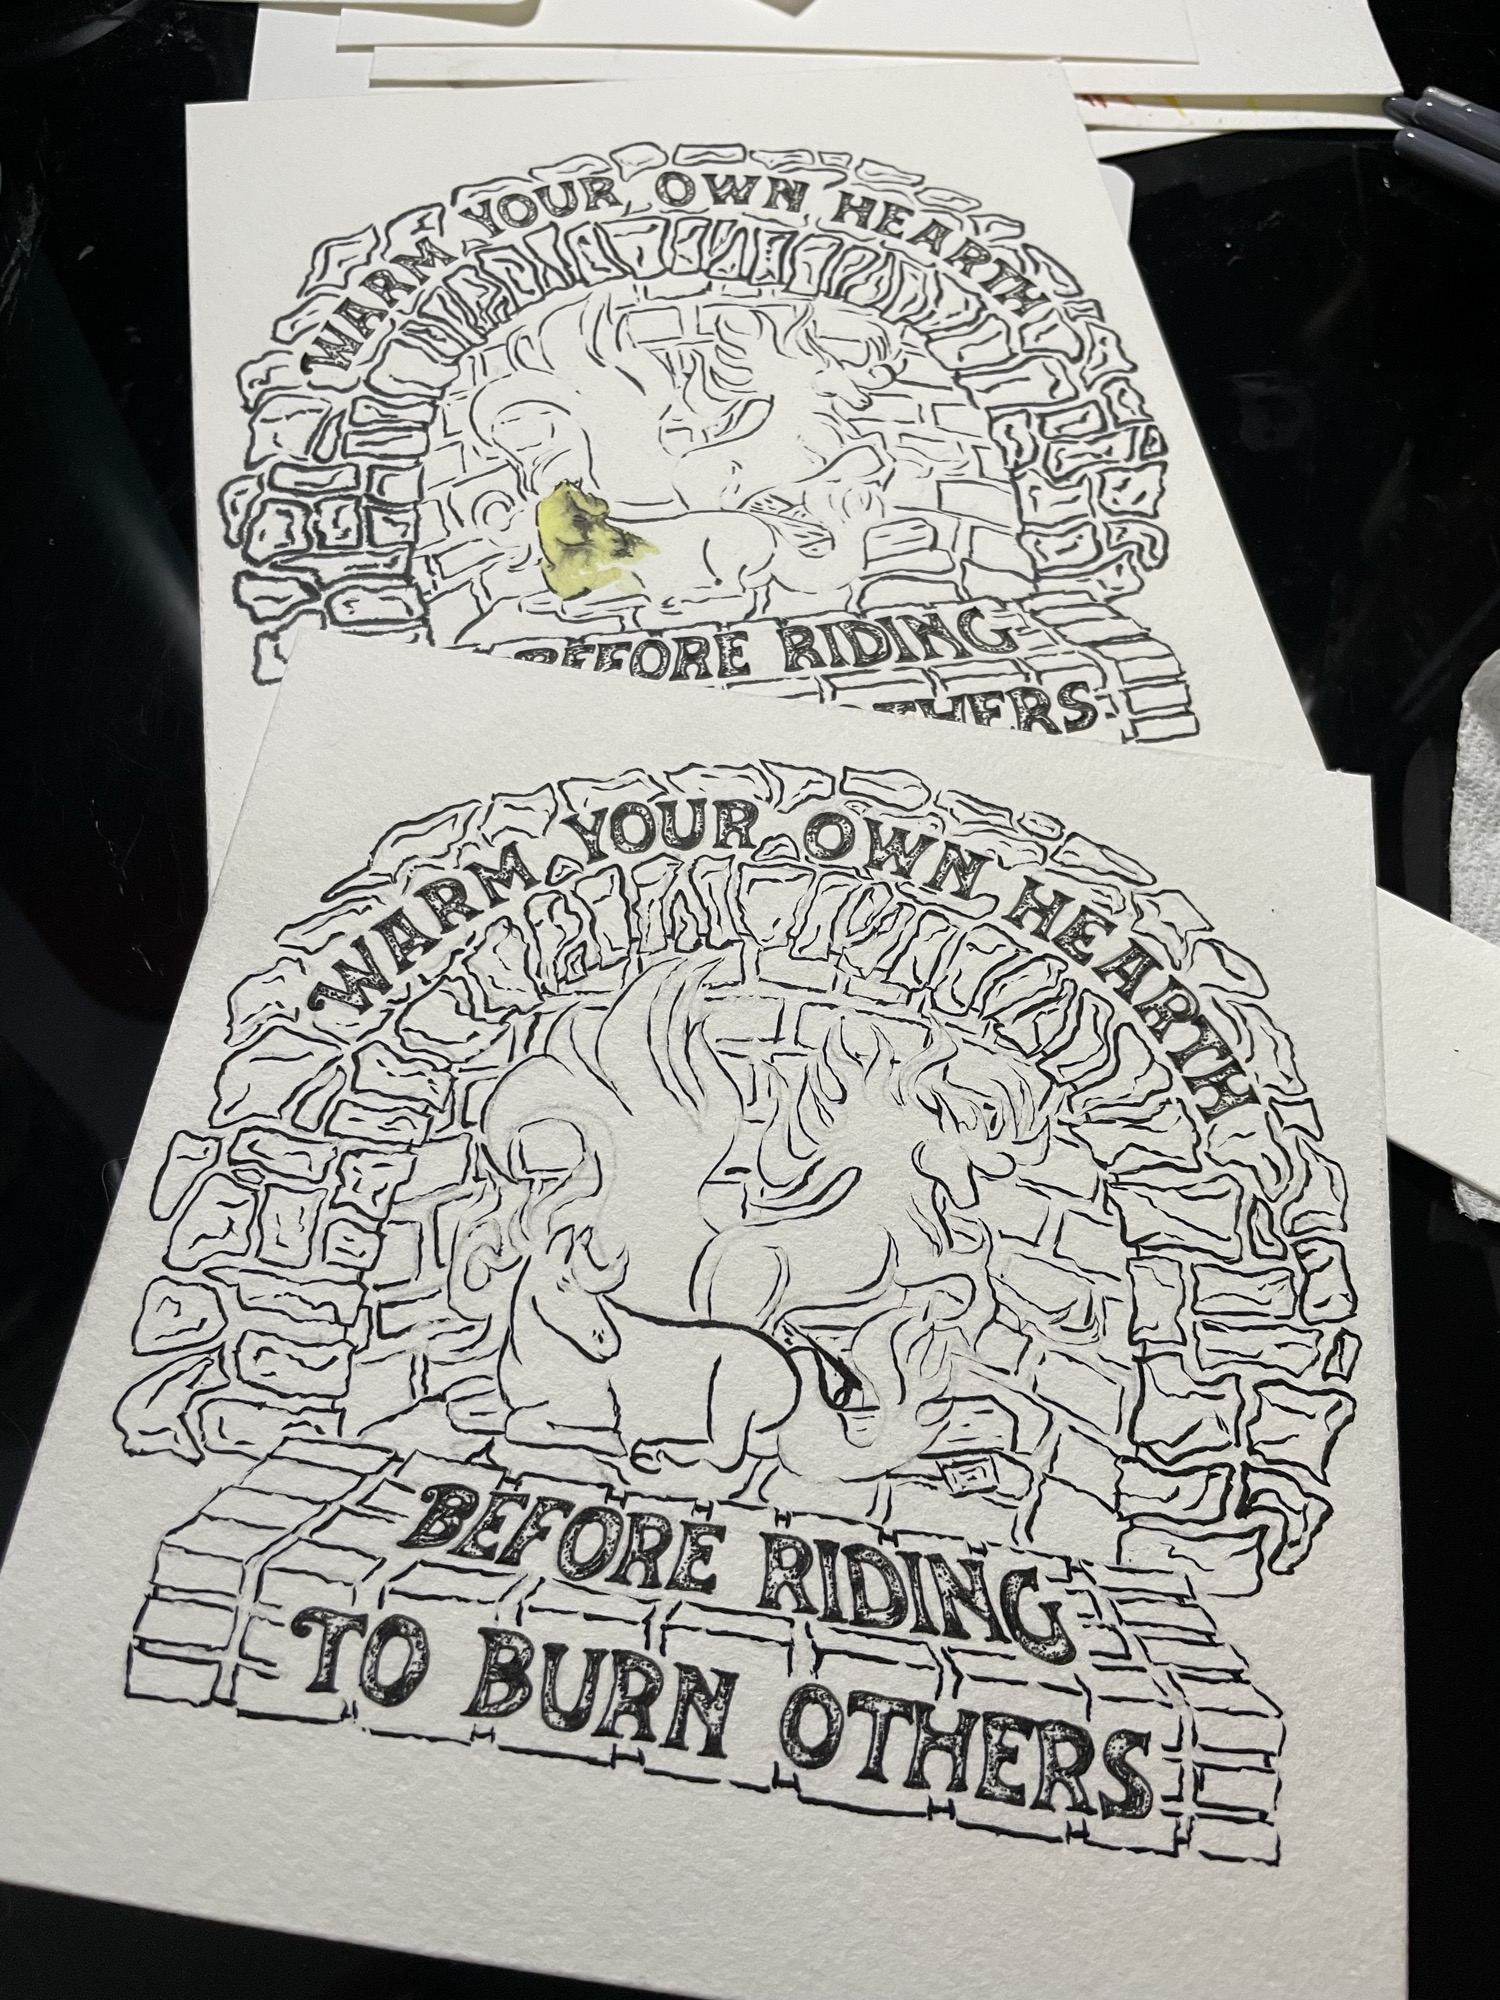 WARM YOUR OWN HEARTH
BEFORE RIDING
OTHERS
WARM YOUR OWN HEARTH
BEFORE RIDING
TO BURN OTHERS